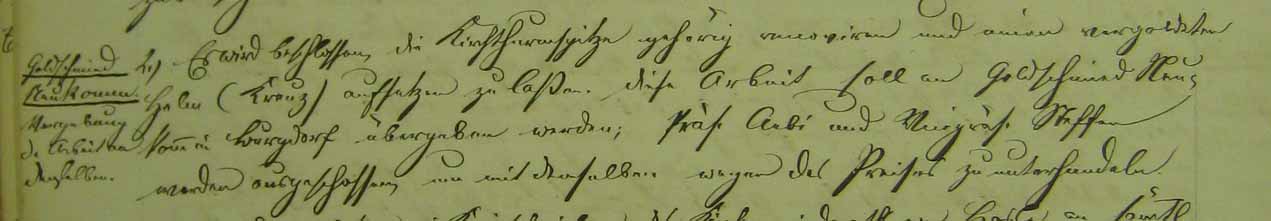 Goldschmied
Neukomm.
Vergebung
d. Arbeit an
denselben.
2.) Es wird beschlossen, die Kirchthurmspitze gehörig renoviren und einen vergoldeten
Helm (Kreuz) aufsetzen zu laßen. Diese Arbeit soll an Goldschmied Neu-
komm in Burgdorf übergeben werden; Präs. Aebi und Vicepräs. Steffen
werden ausgeschossen, um mit demselben wegen des Preises zu unterhandeln.